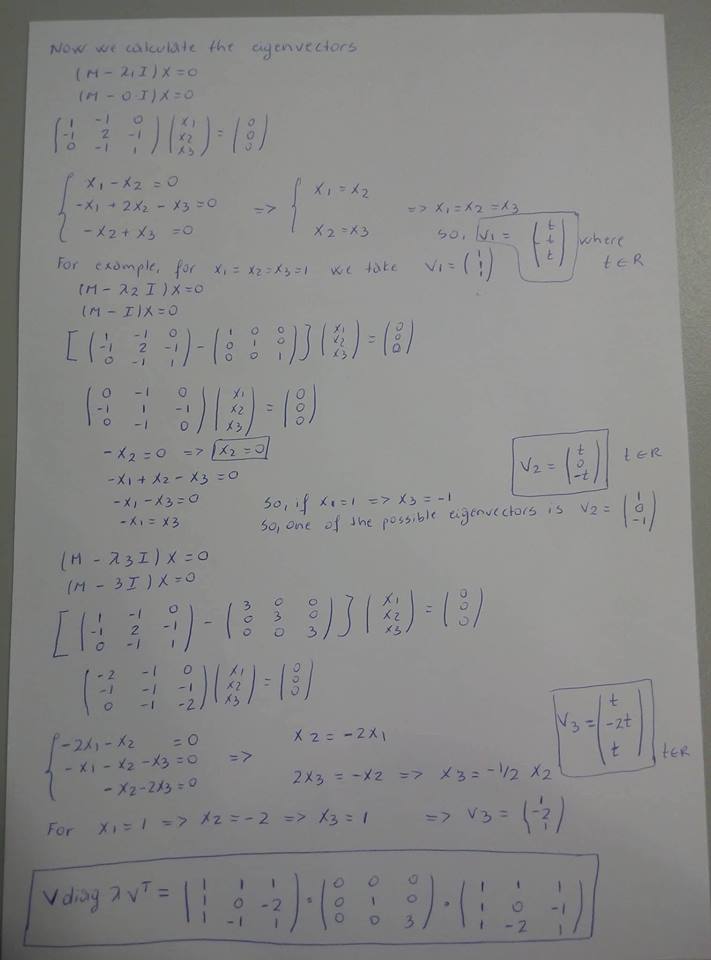 Now we calculate the eigenvectors
(M - λ1 I) X = 0
(M - 0·I) X = 0
(1 -1 0; -1 2 -1; 0 -1 1) (x1; x2; x3) = (0; 0; 0)
{ x1 - x2 = 0; -x1 + 2x2 - x3 = 0; -x2 + x3 = 0 => { x1 = x2; x2 = x3 => x1 = x2 = x3
so, v1 = (t; t; t) where t ∈ R
For example, for x1 = x2 = x3 = 1 we take v1 = (1; 1; 1)
(M - λ2 I) X = 0
(M - I) X = 0
[(1 -1 0; -1 2 -1; 0 -1 1) - (1 0 0; 0 1 0; 0 0 1)] (x1; x2; x3) = (0; 0; 0)
(0 -1 0; -1 1 -1; 0 -1 0) (x1; x2; x3) = (0; 0; 0)
-x2 = 0 => x2 = 0
v2 = (t; 0; -t) t ∈ R
-x1 + x2 - x3 = 0
-x1 - x3 = 0 so, if x1 = 1 => x3 = -1
-x1 = x3 so, one of the possible eigenvectors is v2 = (1; 0; -1)
(M - λ3 I) X = 0
(M - 3I) X = 0
[(1 -1 0; -1 2 -1; 0 -1 1) - (3 0 0; 0 3 0; 0 0 3)] (x1; x2; x3) = (0; 0; 0)
(-2 -1 0; -1 -1 -1; 0 -1 -2) (x1; x2; x3) = (0; 0; 0)
v3 = (t; -2t; t) t ∈ R
{ -2x1 - x2 = 0; -x1 - x2 - x3 = 0; -x2 - 2x3 = 0 => x2 = -2x1
2x3 = -x2 => x3 = -1/2 x2
For x1 = 1 => x2 = -2 => x3 = 1 => v3 = (1; -2; 1)
V diag λ V^T = (1 1 1; 1 0 -2; 1 -1 1) · (0 0 0; 0 1 0; 0 0 3) · (1 1 1; 1 0 -1; 1 -2 1)